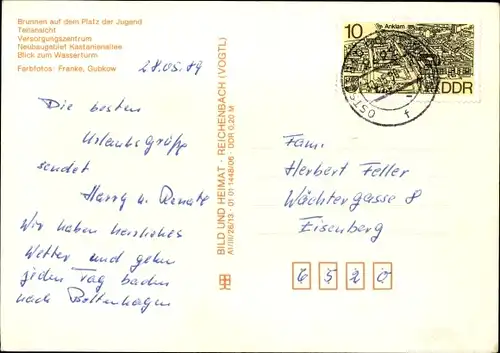 Brunnen auf dem Platz der Jugend
Teilansicht
Versorgungszentrum
Neubaugebiet Kastanienallee
Blick zum Wasserturm
Farbfotos: Franke, Gubkow
28.05.89
Die besten
Urlaubsgrüße
sendet
Harry u. Renate
Wir haben herrliches
Wetter und gehn
jeden Tag baden
nach Boltenhagen
BILD UND HEIMAT · REICHENBACH (VOGTL)
A1/III/26/13 · 01 01 1448/06 · DDR 0,20 M
10
Anklam
DDR
OSTS
Fam.
Herbert Feller
Wächtergasse 8
Eisenberg
6520